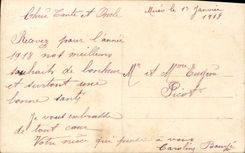 Chère Tante et Oncle
le 1er Janvier 1918
Recevez pour l'année
1918 nos meilleurs
souhaits de bonheur
et surtout une
bonne santé
Je vous embrasse
de tout cœur
Votre nièce qui pense à vous
Caroline
Mr et Mme Eugène